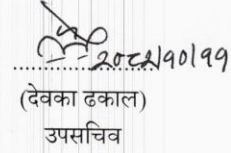 २०८२।१०।११
(देवका ढकाल)
उपसचिव